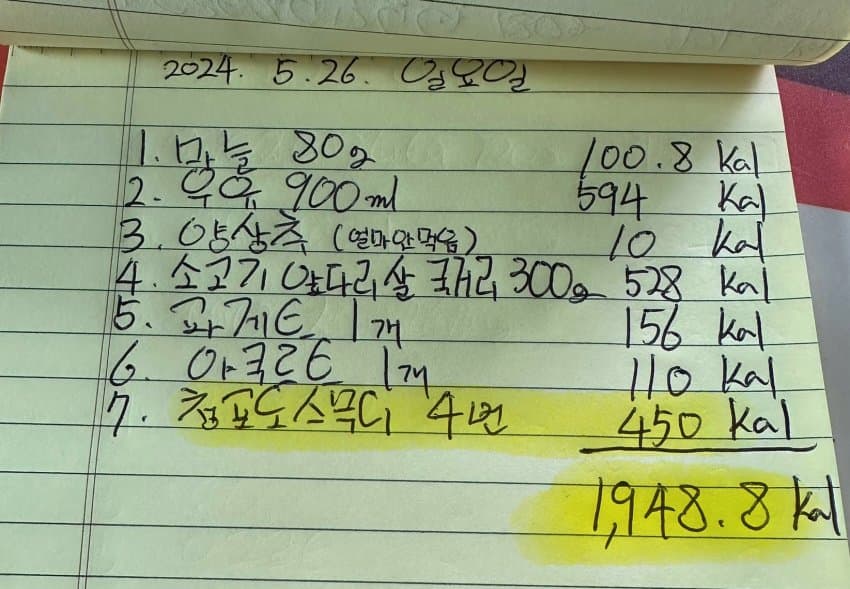 2024. 5.26. 일요일
1. 마늘 80g 100.8 Kal
2. 우유 900ml 594 Kal
3. 양상추 (얼마안먹음) 10 Kal
4. 소고기 앞다리살 국거리 300g 528 Kal
5. 1개 156 Kal
6. 야쿠르트 1개 110 Kal
7. 청포도스무디 4번 450 Kal
1,948.8 Kal